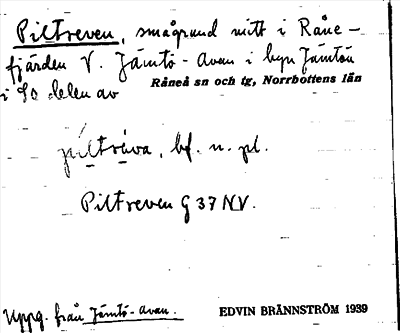 Piltreven, smågrund mitt i Råne-
fjärden V. Jämtö-Avan i byn Jämtön
i So delen av Råneå sn och tg, Norrbottens län
piltrėva, bf. n. pl.
Piltreven G 37 NV.
Uppg. från Jämtö-Avan.
EDVIN BRÄNNSTRÖM 1939